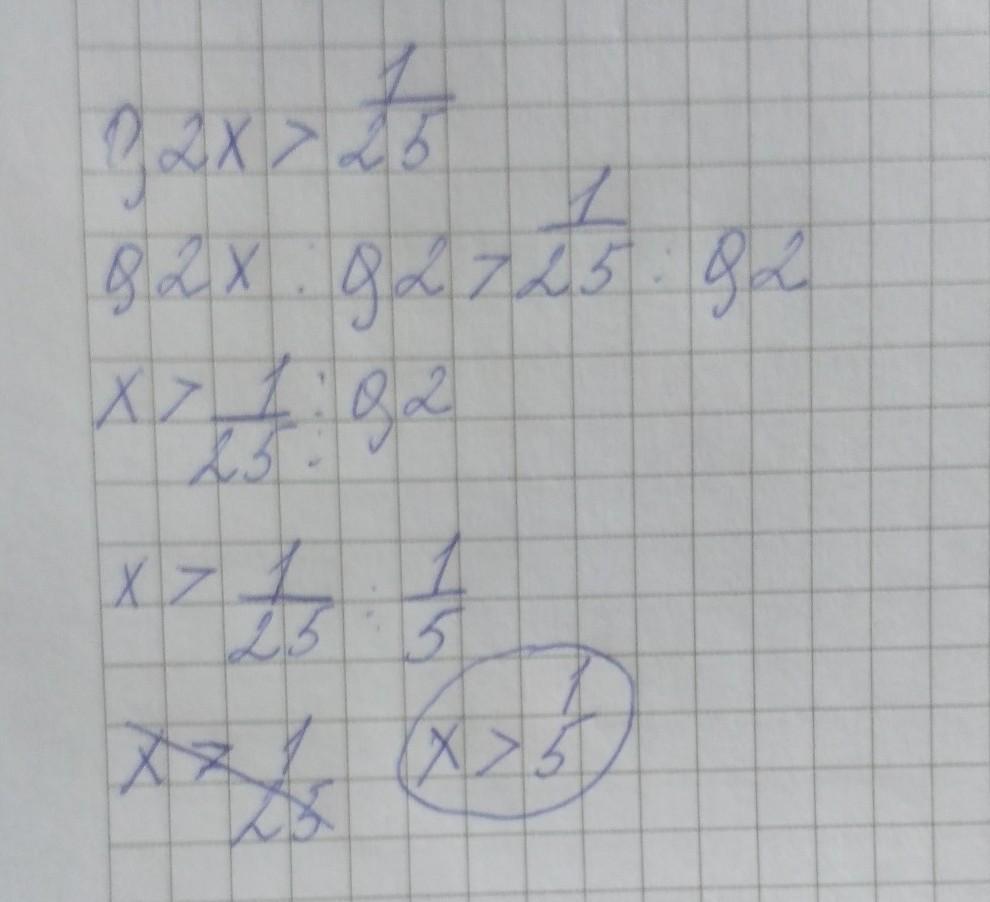 0,2x > 1/25
0,2x : 0,2 > 1/25 : 0,2
x > 1/25 : 0,2
x > 1/25 : 1/5
x > 1/25 x > 1/5